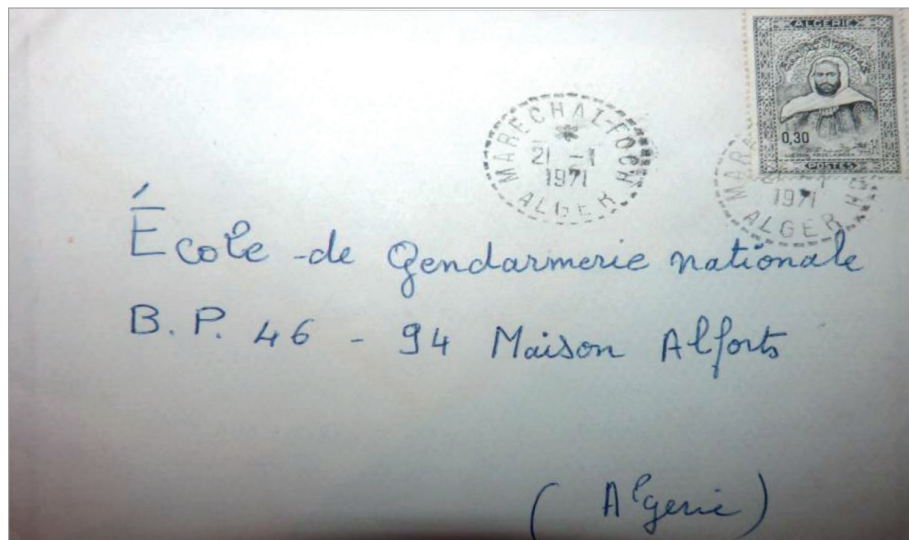 ALGERIE
0,30
POSTES
MARECHAL-FOCH
21 -1
1971
ALGER
21 -1
1971
ALGER
École de Gendarmerie nationale
B.P. 46 - 94 Maison Alforts
(Algerie)